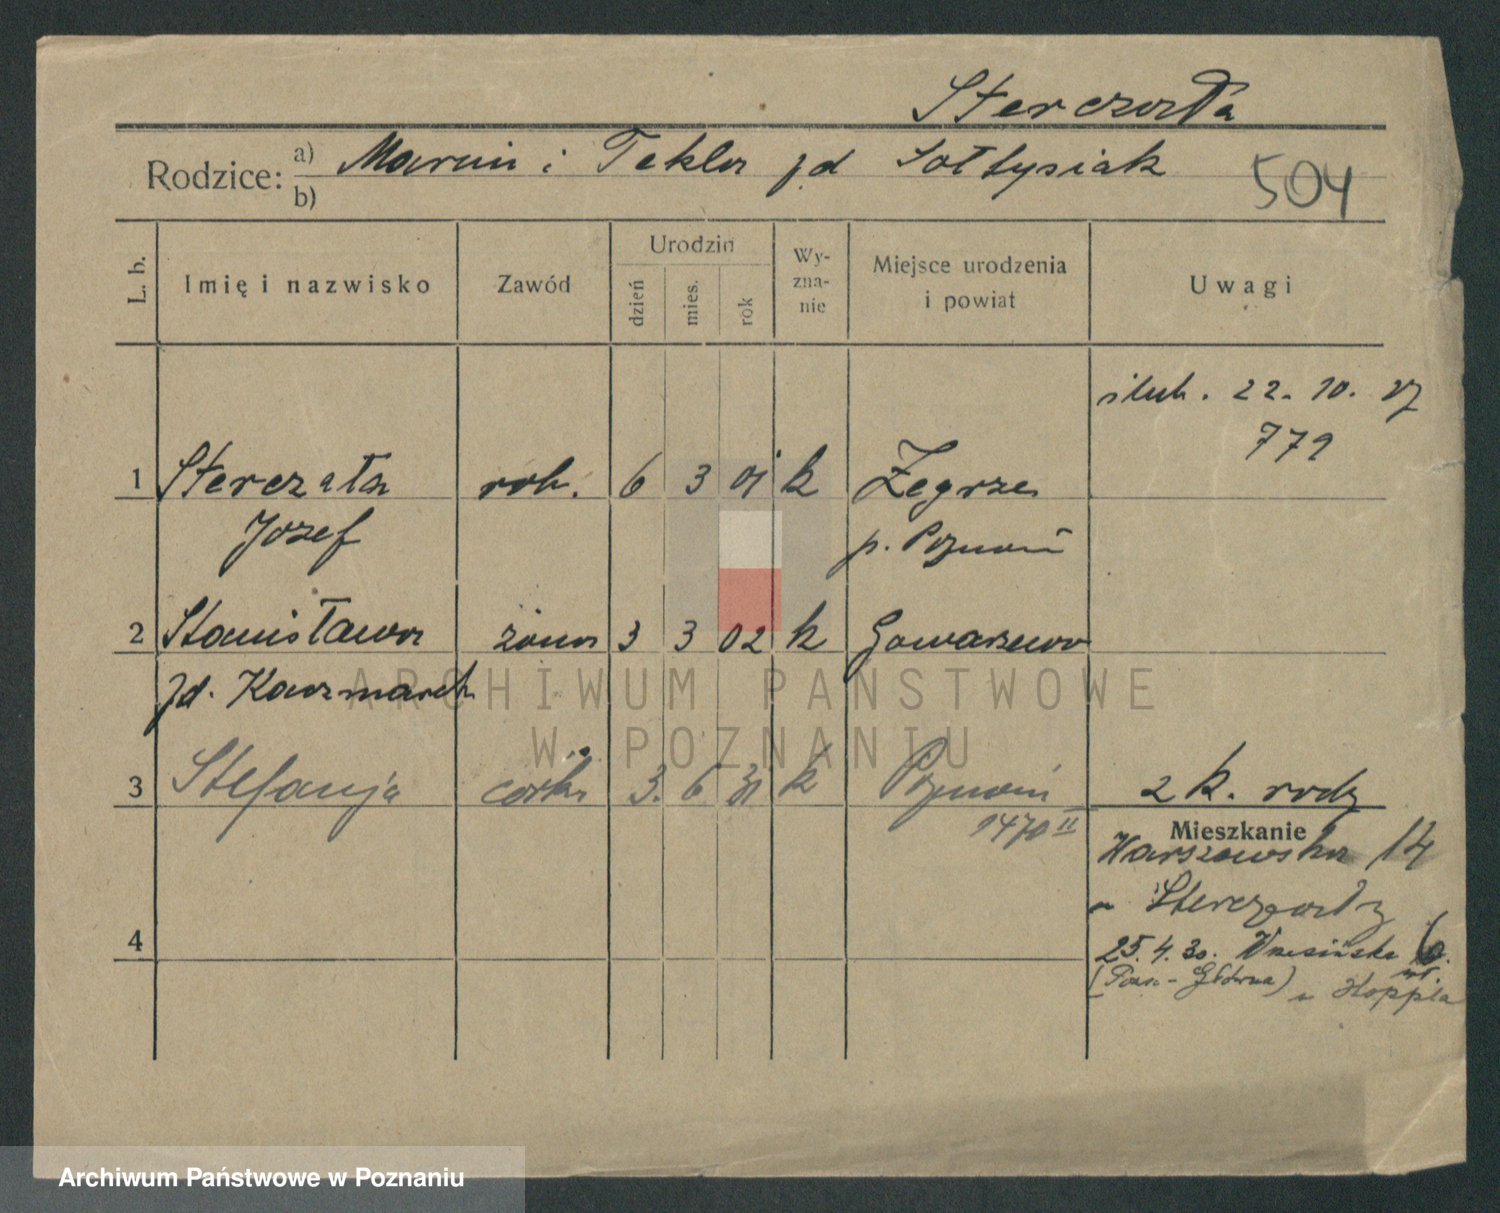 Sterczała
Rodzice: a) Marcin i Tekla jd Sołtysiak
b)
504
L. b.
Imię i nazwisko
Zawód
Urodzin
dzień
mies.
rok
Wy-
zna-
nie
Miejsce urodzenia
i powiat
Uwagi
ślub. 22. 10. 27
779
1 Sterczała rob. 6 3 01 k Zegrze
Józef p. Poznań
2 Stanisława żona 3 3 02 k Gowarzewo
jd. Kaczmarek
3 Stefanja córka 3. 6 31 k Poznań
1470 II
2 k. rodz
Mieszkanie
Warszawska 14
u Sterczały
4
25. 4. 30. Wrzesińska 6.
(Pozn. - Główna) u Hoppla
ARCHIWUM PAŃSTWOWE
W POZNANIU
Archiwum Państwowe w Poznaniu